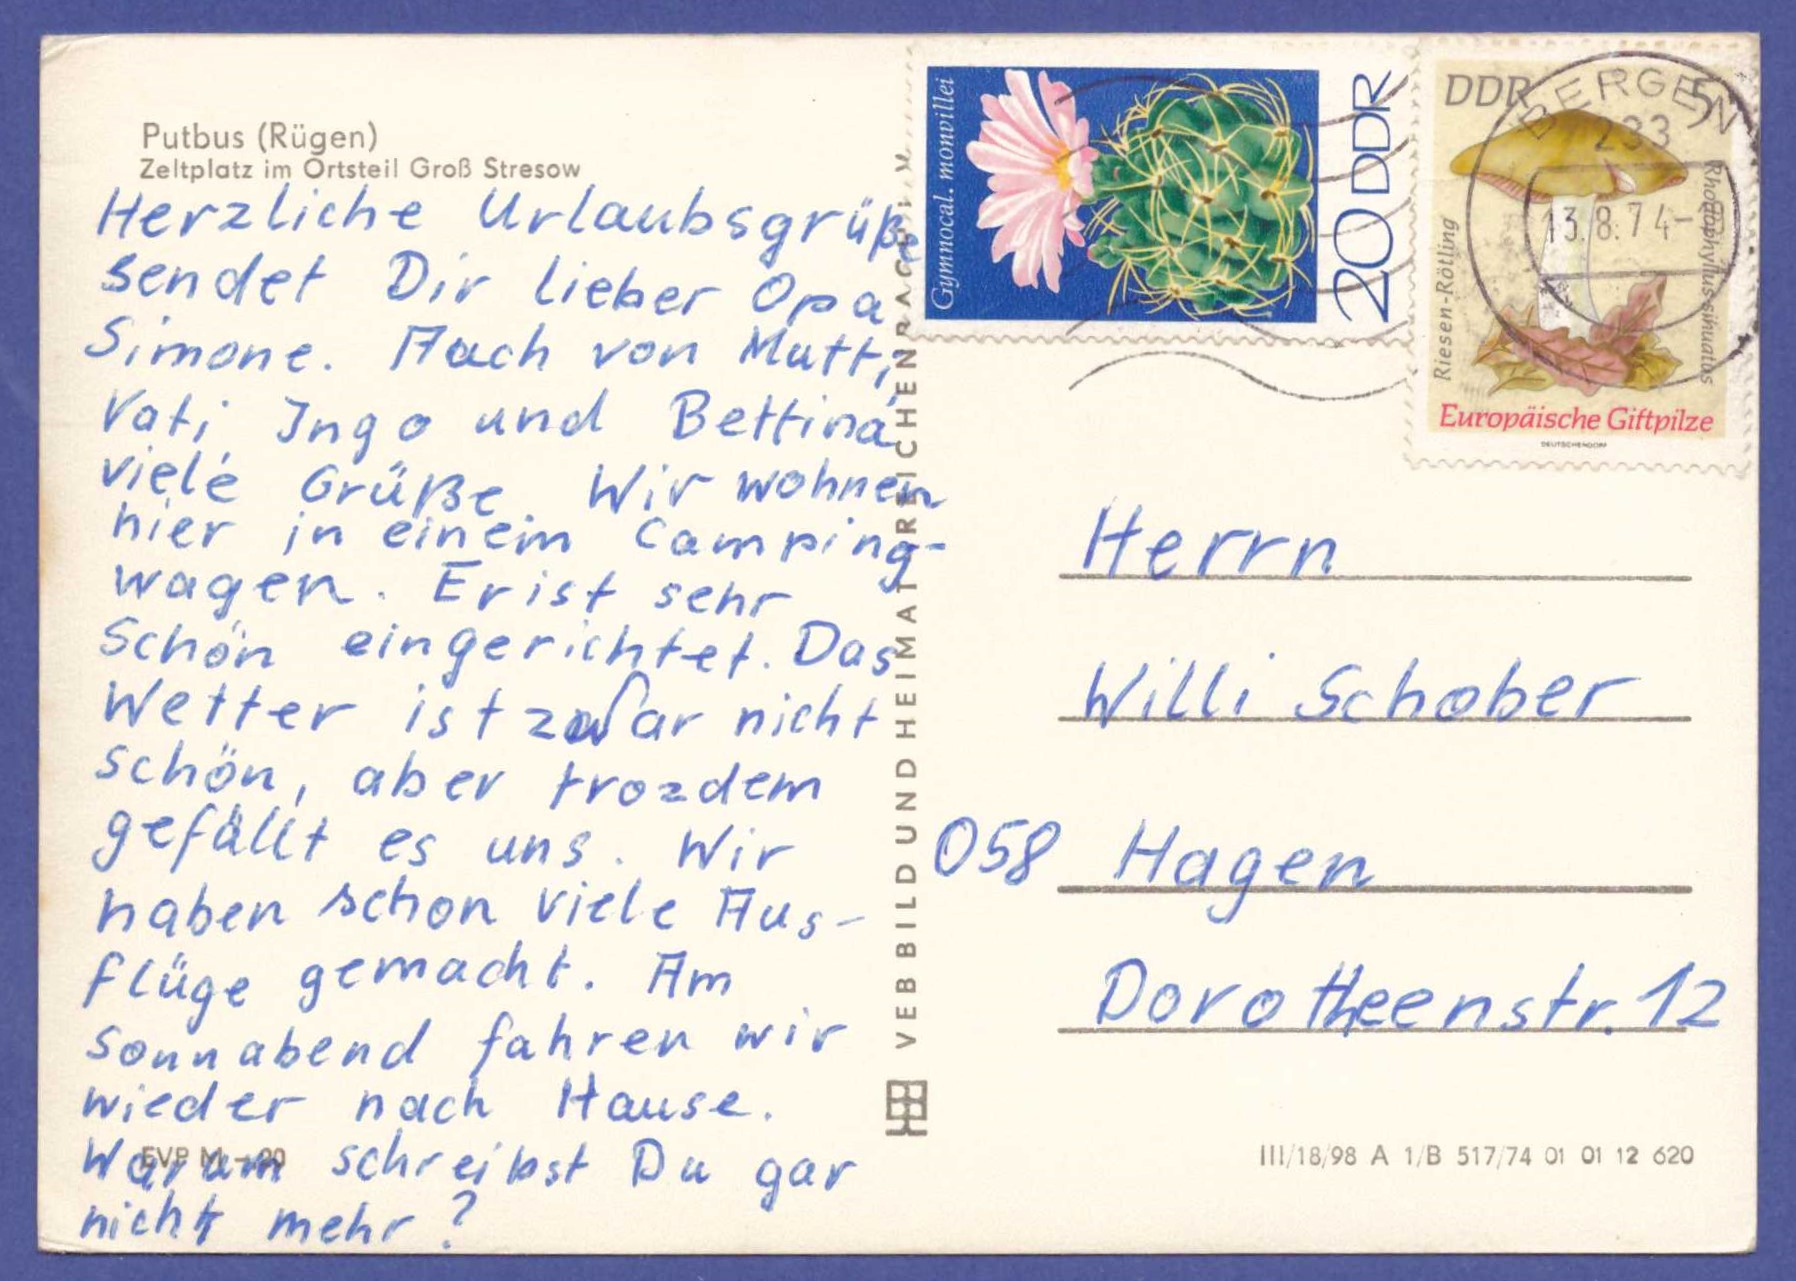 Putbus (Rügen)
Zeltplatz im Ortsteil Groß Stresow
Herzliche Urlaubsgrüße
sendet Dir lieber Opa
Simone. Auch von Mutti,
Vati Ingo und Bettina
viele Grüße. Wir wohnen
hier in einem Camping-
wagen. Er ist sehr
schön eingerichtet. Das
Wetter ist zwar nicht
schön, aber trozdem
gefällt es uns. Wir
haben schon viele Aus-
flüge gemacht. Am
Sonnabend fahren wir
wieder nach Hause.
Warum schreibst Du gar
nicht mehr?
EVP M -,20
VEB BILD UND HEIMAT REICHENBACH I. V.
Gymnocal. monvillei
20 DDR
DDR 5
Riesen-Rötling
Rhodophyllus sinuatus
Europäische Giftpilze
DEUTSCHENDORF
BERGEN
233
13.8.74-
Herrn
Willi Schober
058 Hagen
Dorotheenstr. 12
III/18/98 A 1/B 517/74 01 01 12 620